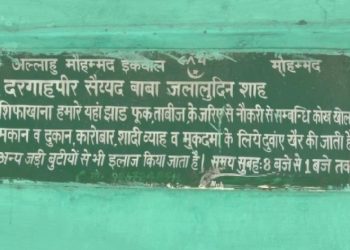 अल्लाहु मौहम्मद इकबाल ॐ मौहम्मद
दरगाहपीर सैय्यद बाबा जलालुदिन शाह
शिफाखाना हमारे यहां झाड फूक, ताबीज के जरिए से नौकरी से सम्बन्धि कोख
मकान व दुकान, कारोबार, शादी व्याह व मुकदमा के लिये दुवांए खैर की जाती है
अन्य जड़ी बुटीयों से भी इलाज किया जाता है। समय सुबह: 8 बजे से 1 बजे तक